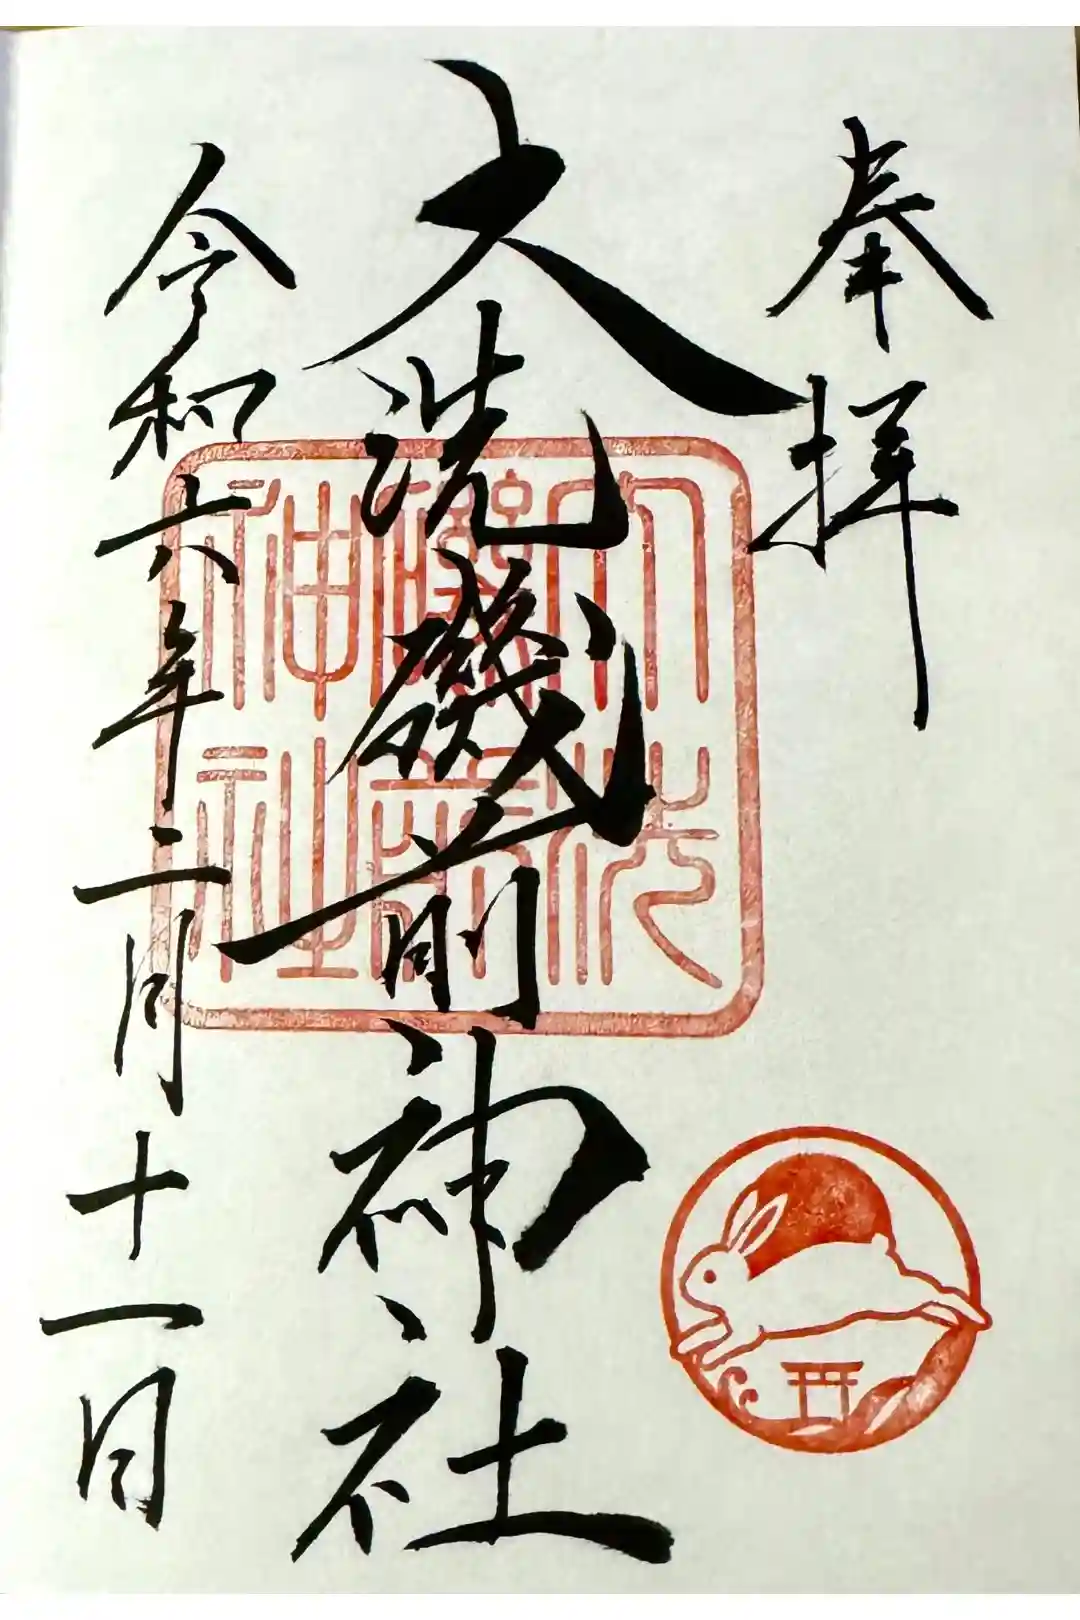 奉拝
大洗磯前神社
大洗
磯前
神社
令和六年二月十一日